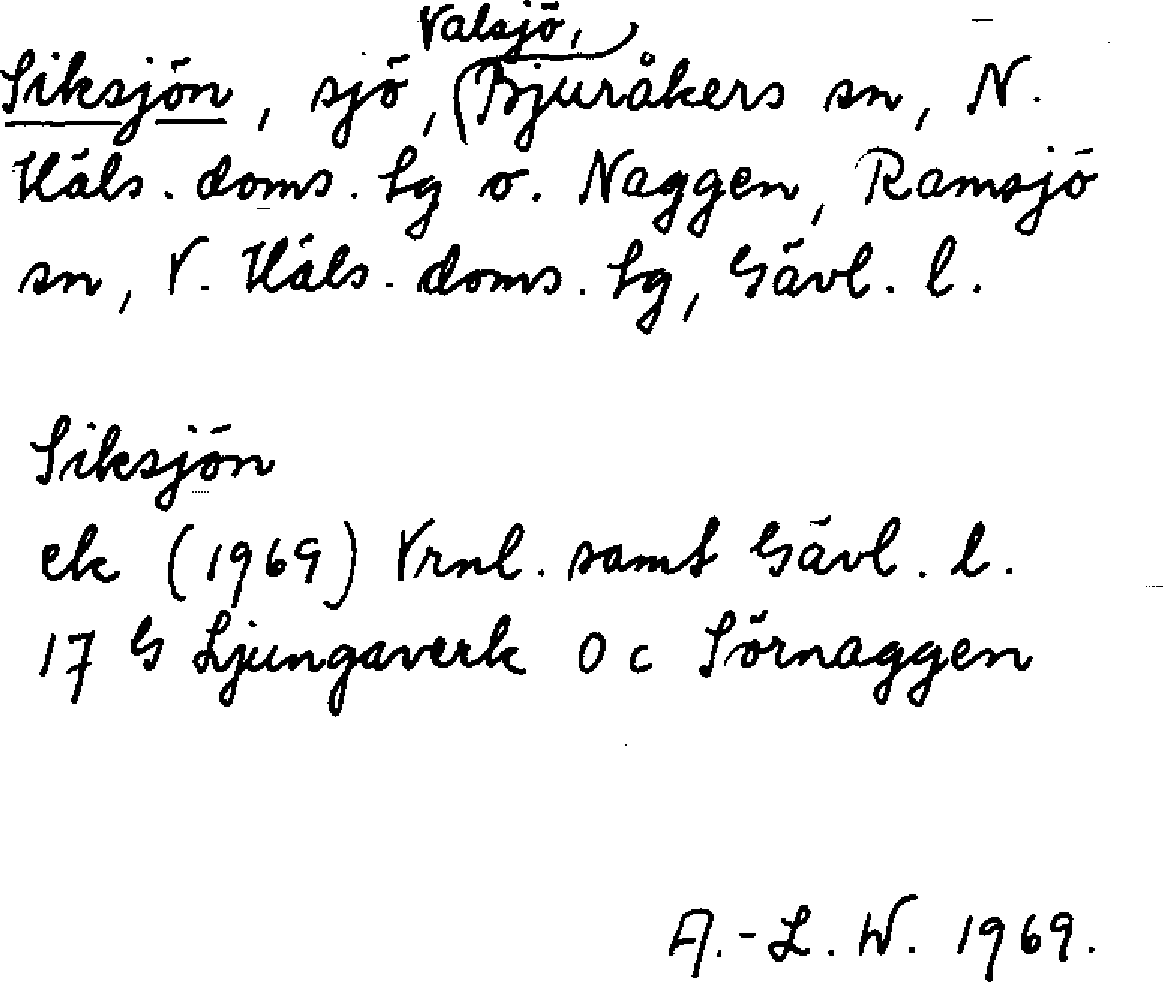 Valsjö,
Siksjön, sjö, Bjuråkers sn, N.
Häls. doms. tg o. Naggen, Ramsjö
sn, V. Häls. doms. tg, Gävl. l.
Siksjön
ek (1969) Vrnl. samt Gävl. l.
17 G Ljungaverk 0 c Sörnaggen
A.-L. W. 1969.